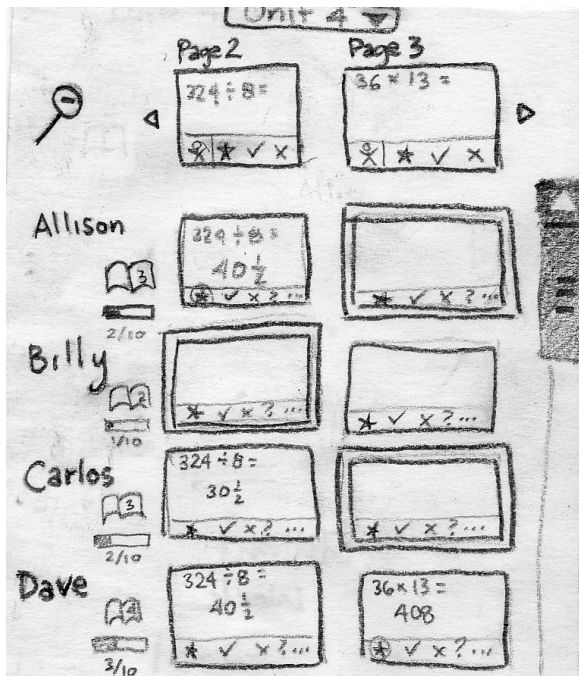 Unit 4
Page 2
Page 3
324 ÷ 8 =
36 × 13 =
Allison
3
2/10
324 ÷ 8 =
40 1/2
? ...
? ...
Billy
2
1/10
? ...
? ...
Carlos
3
2/10
324 ÷ 8 =
30 1/2
? ...
? ...
Dave
4
3/10
324 ÷ 8 =
40 1/2
? ...
36 × 13 =
408
? ...